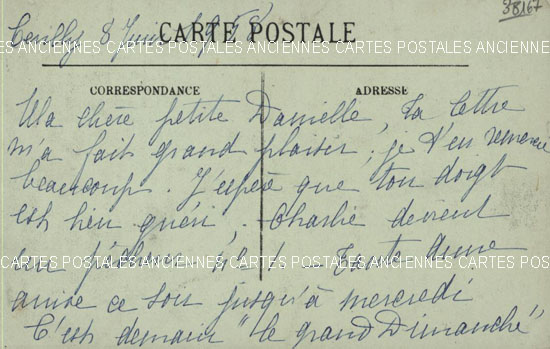 38167
8 Juin 1958
CARTE POSTALE
CARTES POSTALES ANCIENNES CARTES POSTALES ANCIENNES CARTES POSTALES ANCIENNES
CORRESPONDANCE ADRESSE
Ma chère petite Danielle, Ta lettre
m'a fait grand plaisir, je t'en remercie
beaucoup. J'espère que ton doigt
est bien guéri, Charlie devient
! — Tante Anne
CARTES POSTALES ANCIENNES CARTES POSTALES ANCIENNES CARTES POSTALES ANCIENNES
arrive ce soir jusqu'à mercredi
C'est demain "le grand Dimanche"